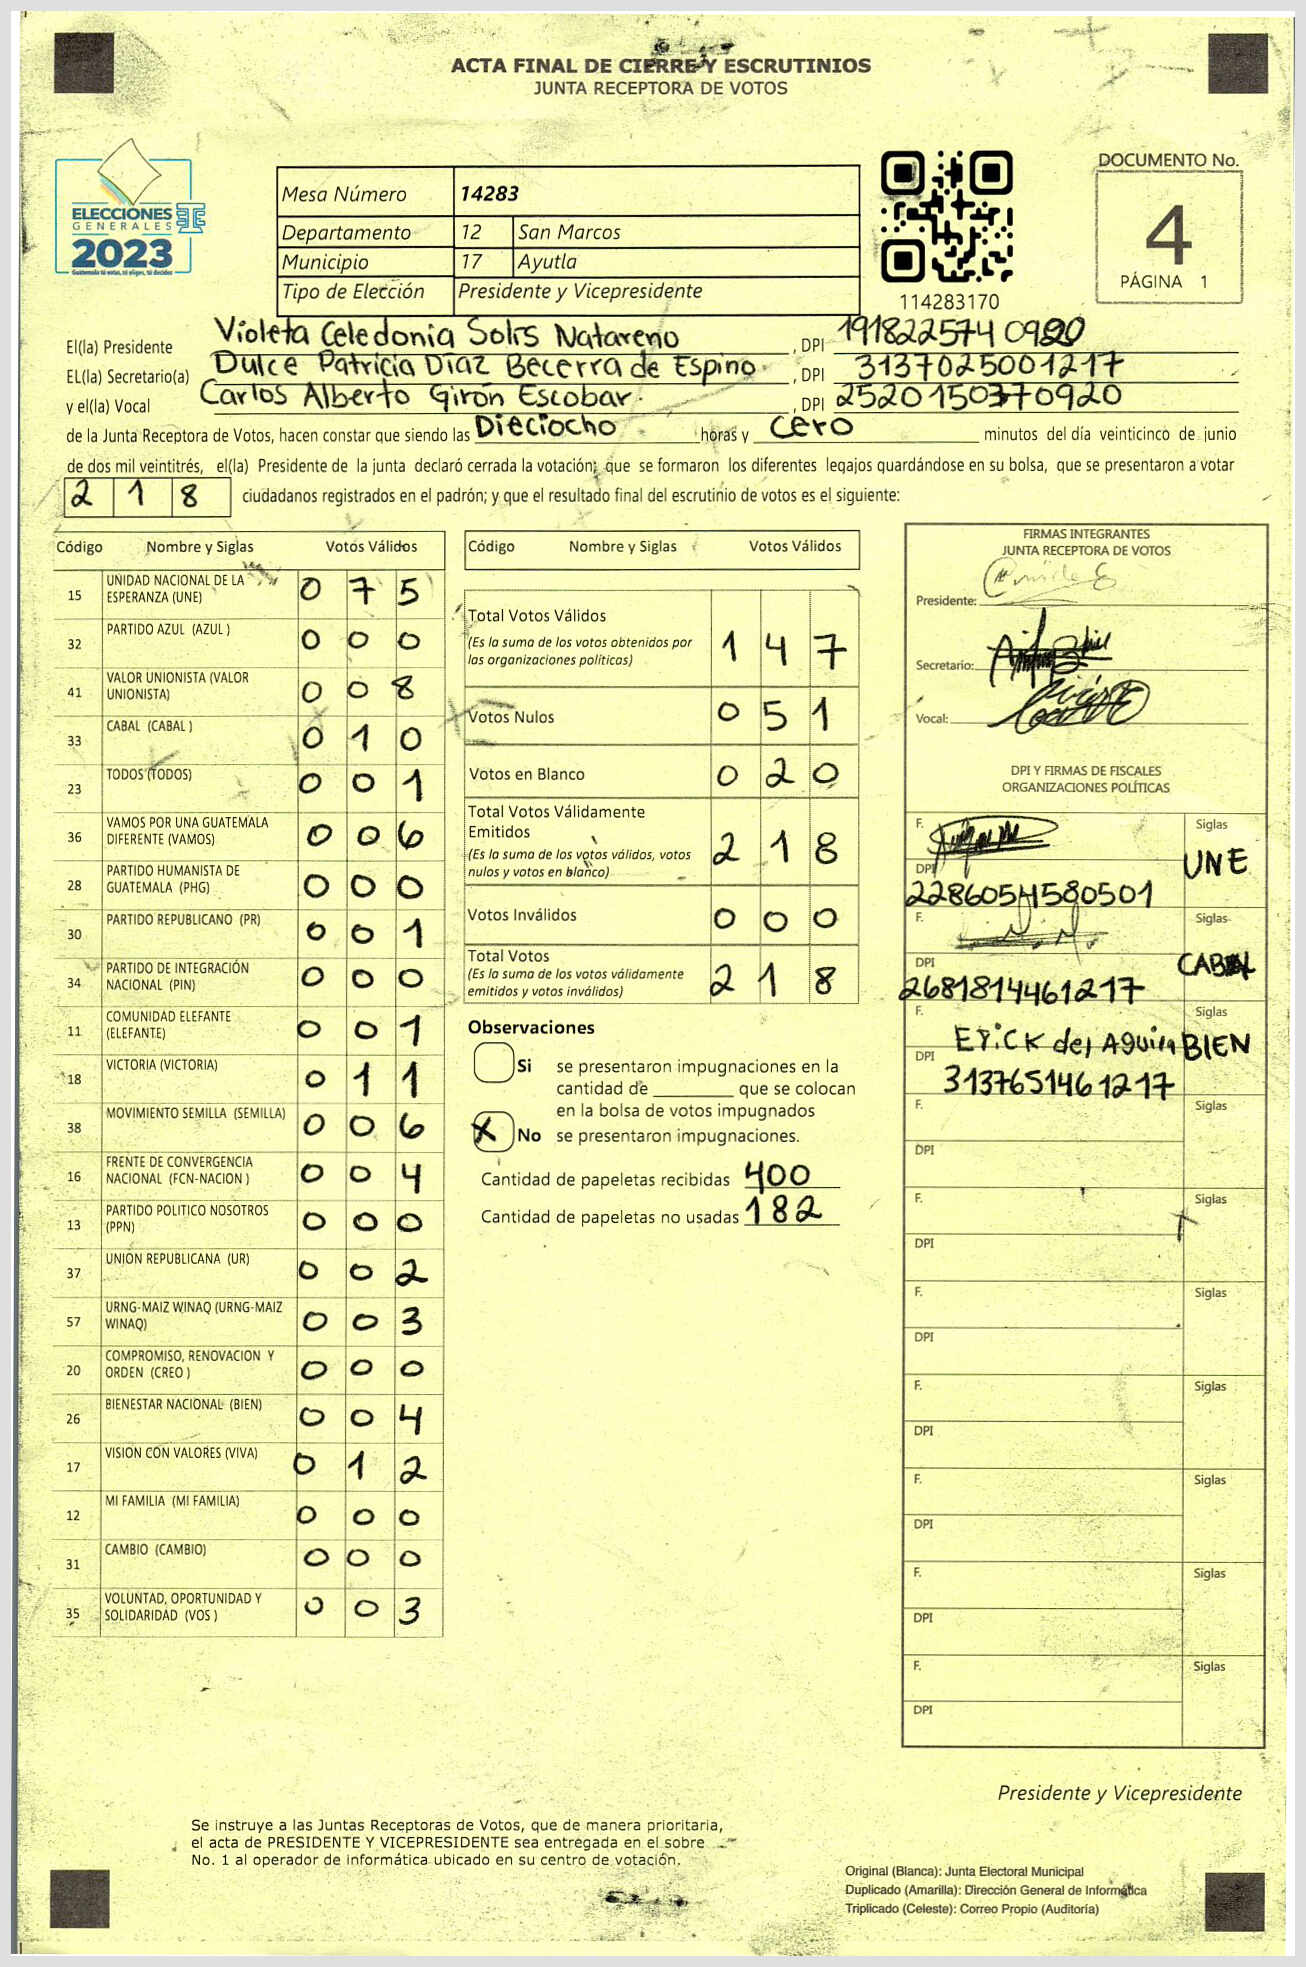 ACTA FINAL DE CIERRE Y ESCRUTINIOS
JUNTA RECEPTORA DE VOTOS
ELECCIONES
GENERALES
2023
Guatemala tú votas, tú eliges, tú decides
Mesa Número 14283
Departamento 12 San Marcos
Municipio 17 Ayutla
Tipo de Elección Presidente y Vicepresidente
114283170
DOCUMENTO No.
4
PÁGINA 1
El(la) Presidente Violeta Celedonia Solis Natareno, DPI 191822574 0920
EL(la) Secretario(a) Dulce Patricia Díaz Becerra de Espino, DPI 3137025001217
y el(la) Vocal Carlos Alberto Girón Escobar, DPI 2520150370920
de la Junta Receptora de Votos, hacen constar que siendo las Dieciocho horas y cero minutos del día veinticinco de junio
de dos mil veintitrés, el(la) Presidente de la junta declaró cerrada la votación; que se formaron los diferentes legajos quardándose en su bolsa, que se presentaron a votar
2 1 8 ciudadanos registrados en el padrón; y que el resultado final del escrutinio de votos es el siguiente:
Código Nombre y Siglas Votos Válidos
15 UNIDAD NACIONAL DE LA ESPERANZA (UNE) 0 7 5
32 PARTIDO AZUL (AZUL ) 0 0 0
41 VALOR UNIONISTA (VALOR UNIONISTA) 0 0 8
33 CABAL (CABAL ) 0 1 0
23 TODOS (TODOS) 0 0 1
36 VAMOS POR UNA GUATEMALA DIFERENTE (VAMOS) 0 0 6
28 PARTIDO HUMANISTA DE GUATEMALA (PHG) 0 0 0
30 PARTIDO REPUBLICANO (PR) 0 0 1
34 PARTIDO DE INTEGRACIÓN NACIONAL (PIN) 0 0 0
11 COMUNIDAD ELEFANTE (ELEFANTE) 0 0 1
18 VICTORIA (VICTORIA) 0 1 1
38 MOVIMIENTO SEMILLA (SEMILLA) 0 0 6
16 FRENTE DE CONVERGENCIA NACIONAL (FCN-NACION ) 0 0 4
13 PARTIDO POLITICO NOSOTROS (PPN) 0 0 0
37 UNION REPUBLICANA (UR) 0 0 2
57 URNG-MAIZ WINAQ (URNG-MAIZ WINAQ) 0 0 3
20 COMPROMISO, RENOVACION Y ORDEN (CREO ) 0 0 0
26 BIENESTAR NACIONAL (BIEN) 0 0 4
17 VISION CON VALORES (VIVA) 0 1 2
12 MI FAMILIA (MI FAMILIA) 0 0 0
31 CAMBIO (CAMBIO) 0 0 0
35 VOLUNTAD, OPORTUNIDAD Y SOLIDARIDAD (VOS ) 0 0 3
Código Nombre y Siglas Votos Válidos
Total Votos Válidos 1 4 7
(Es la suma de los votos obtenidos por
las organizaciones politicas)
Votos Nulos 0 5 1
Votos en Blanco 0 2 0
Total Votos Válidamente
Emitidos 2 1 8
(Es la suma de los votos válidos, votos
nulos y votos en blanco)
Votos Inválidos 0 0 0
Total Votos 2 1 8
(Es la suma de los votos válidamente
emitidos y votos inválidos)
Observaciones
Si se presentaron impugnaciones en la
cantidad de ________ que se colocan
en la bolsa de votos impugnados
X No se presentaron impugnaciones.
Cantidad de papeletas recibidas 400
Cantidad de papeletas no usadas 182
FIRMAS INTEGRANTES
JUNTA RECEPTORA DE VOTOS
Presidente:
Secretario:
Vocal:
DPI Y FIRMAS DE FISCALES
ORGANIZACIONES POLÍTICAS
F. Siglas
UNE
DPI
2286054580501
F. Siglas
CABAL
DPI
2681814461217
F. Erick del Aguila Siglas
BIEN
DPI
3137651461217
F. Siglas
DPI
F. Siglas
DPI
F. Siglas
DPI
F. Siglas
DPI
F. Siglas
DPI
F. Siglas
DPI
F. Siglas
DPI
Presidente y Vicepresidente
Se instruye a las Juntas Receptoras de Votos, que de manera prioritaria,
el acta de PRESIDENTE Y VICEPRESIDENTE sea entregada en el sobre
No. 1 al operador de informática ubicado en su centro de votación.
Original (Blanca): Junta Electoral Municipal
Duplicado (Amarilla): Dirección General de Informática
Triplicado (Celeste): Correo Propio (Auditoría)